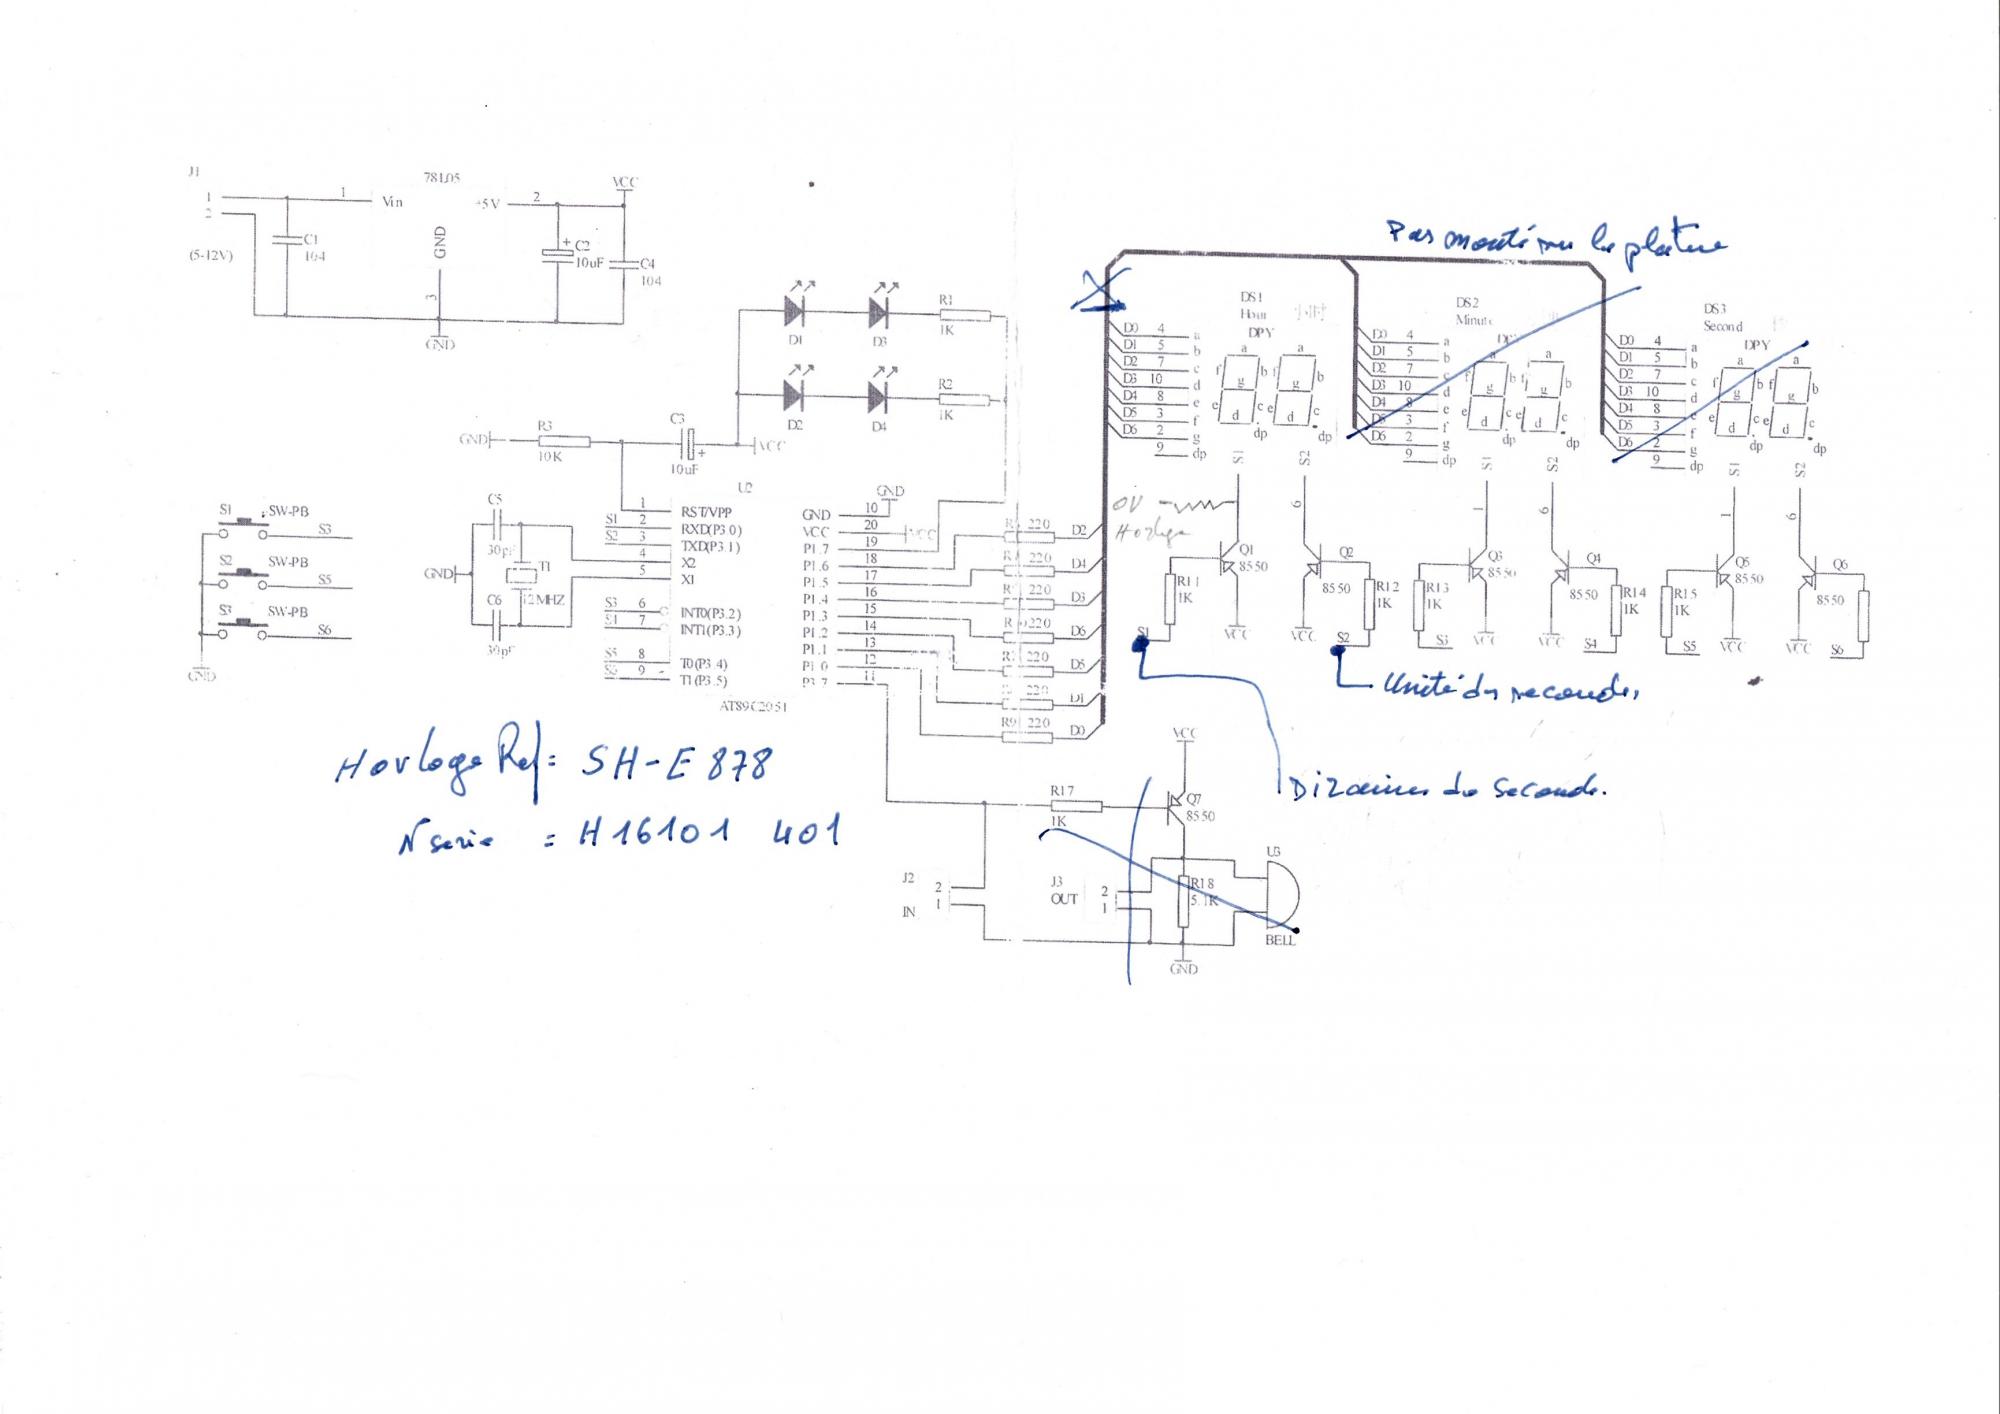 J1
1
2
(5-12V)
C1
104
1
Vin
78L05
+5V
2
GND
3
GND
C2
10uF
+
C4
104
VCC
D1
D3
R1
1K
D2
D4
R2
1K
GND
R3
10K
C3
10uF
+
VCC
U2
S1
SW-PB
S3
S2
SW-PB
S5
S3
SW-PB
S6
GND
C5
30pF
GND
T1
12MHZ
C6
30pF
1 RST/VPP
S1 2 RXD(P3.0)
S2 3 TXD(P3.1)
4 X2
5 X1
S3 6 INT0(P3.2)
7 INT1(P3.3)
S5 8 T0(P3.4)
9 T1(P3.5)
AT89C2051
GND 10 GND
VCC 20 VCC
P1.7 19
P1.6 18
P1.5 17
P1.4 16
P1.3 15
P1.2 14
P1.1 13
P1.0 12
P3.7 11
220 D2
220 D4
220 D3
220 D6
220 D5
220 D1
R9 220 D0
Pas monté sur la platine
DS1
Hour 小时
DPY
D0 4 a
D1 5 b
D2 7 c
D3 10 d
D4 8 e
D5 3 f
D6 2 g
9 dp
a
f
b
g
e
d
c
dp
S1
S2
DS2
Minute
D0 4 a
D1 5 b
D2 7 c
D3 10 d
D4 8 e
D5 3 f
D6 2 g
9 dp
S1
S2
DS3
Second
DPY
D0 4 a
D1 5 b
D2 7 c
D3 10 d
D4 8 e
D5 3 f
D6 2 g
9 dp
S1
S2
0V
Horloge
6
1
6
1
6
Q1
8550
R11
1K
S1
VCC
Q2
8550
R12
1K
S2
VCC
Q3
8550
R13
1K
S3
VCC
Q4
8550
R14
1K
S4
VCC
Q5
8550
R15
1K
S5
VCC
Q6
8550
S6
VCC
Unité de secondes
Dizaines de seconde.
Horloge Ref = SH-E 878
N serie = H16101 401
VCC
R17
1K
Q7
8550
J2
2
1
IN
J3
OUT
2
1
R18
5.1K
U3
BELL
GND